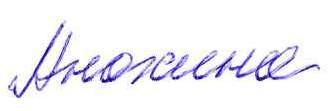 Анохина